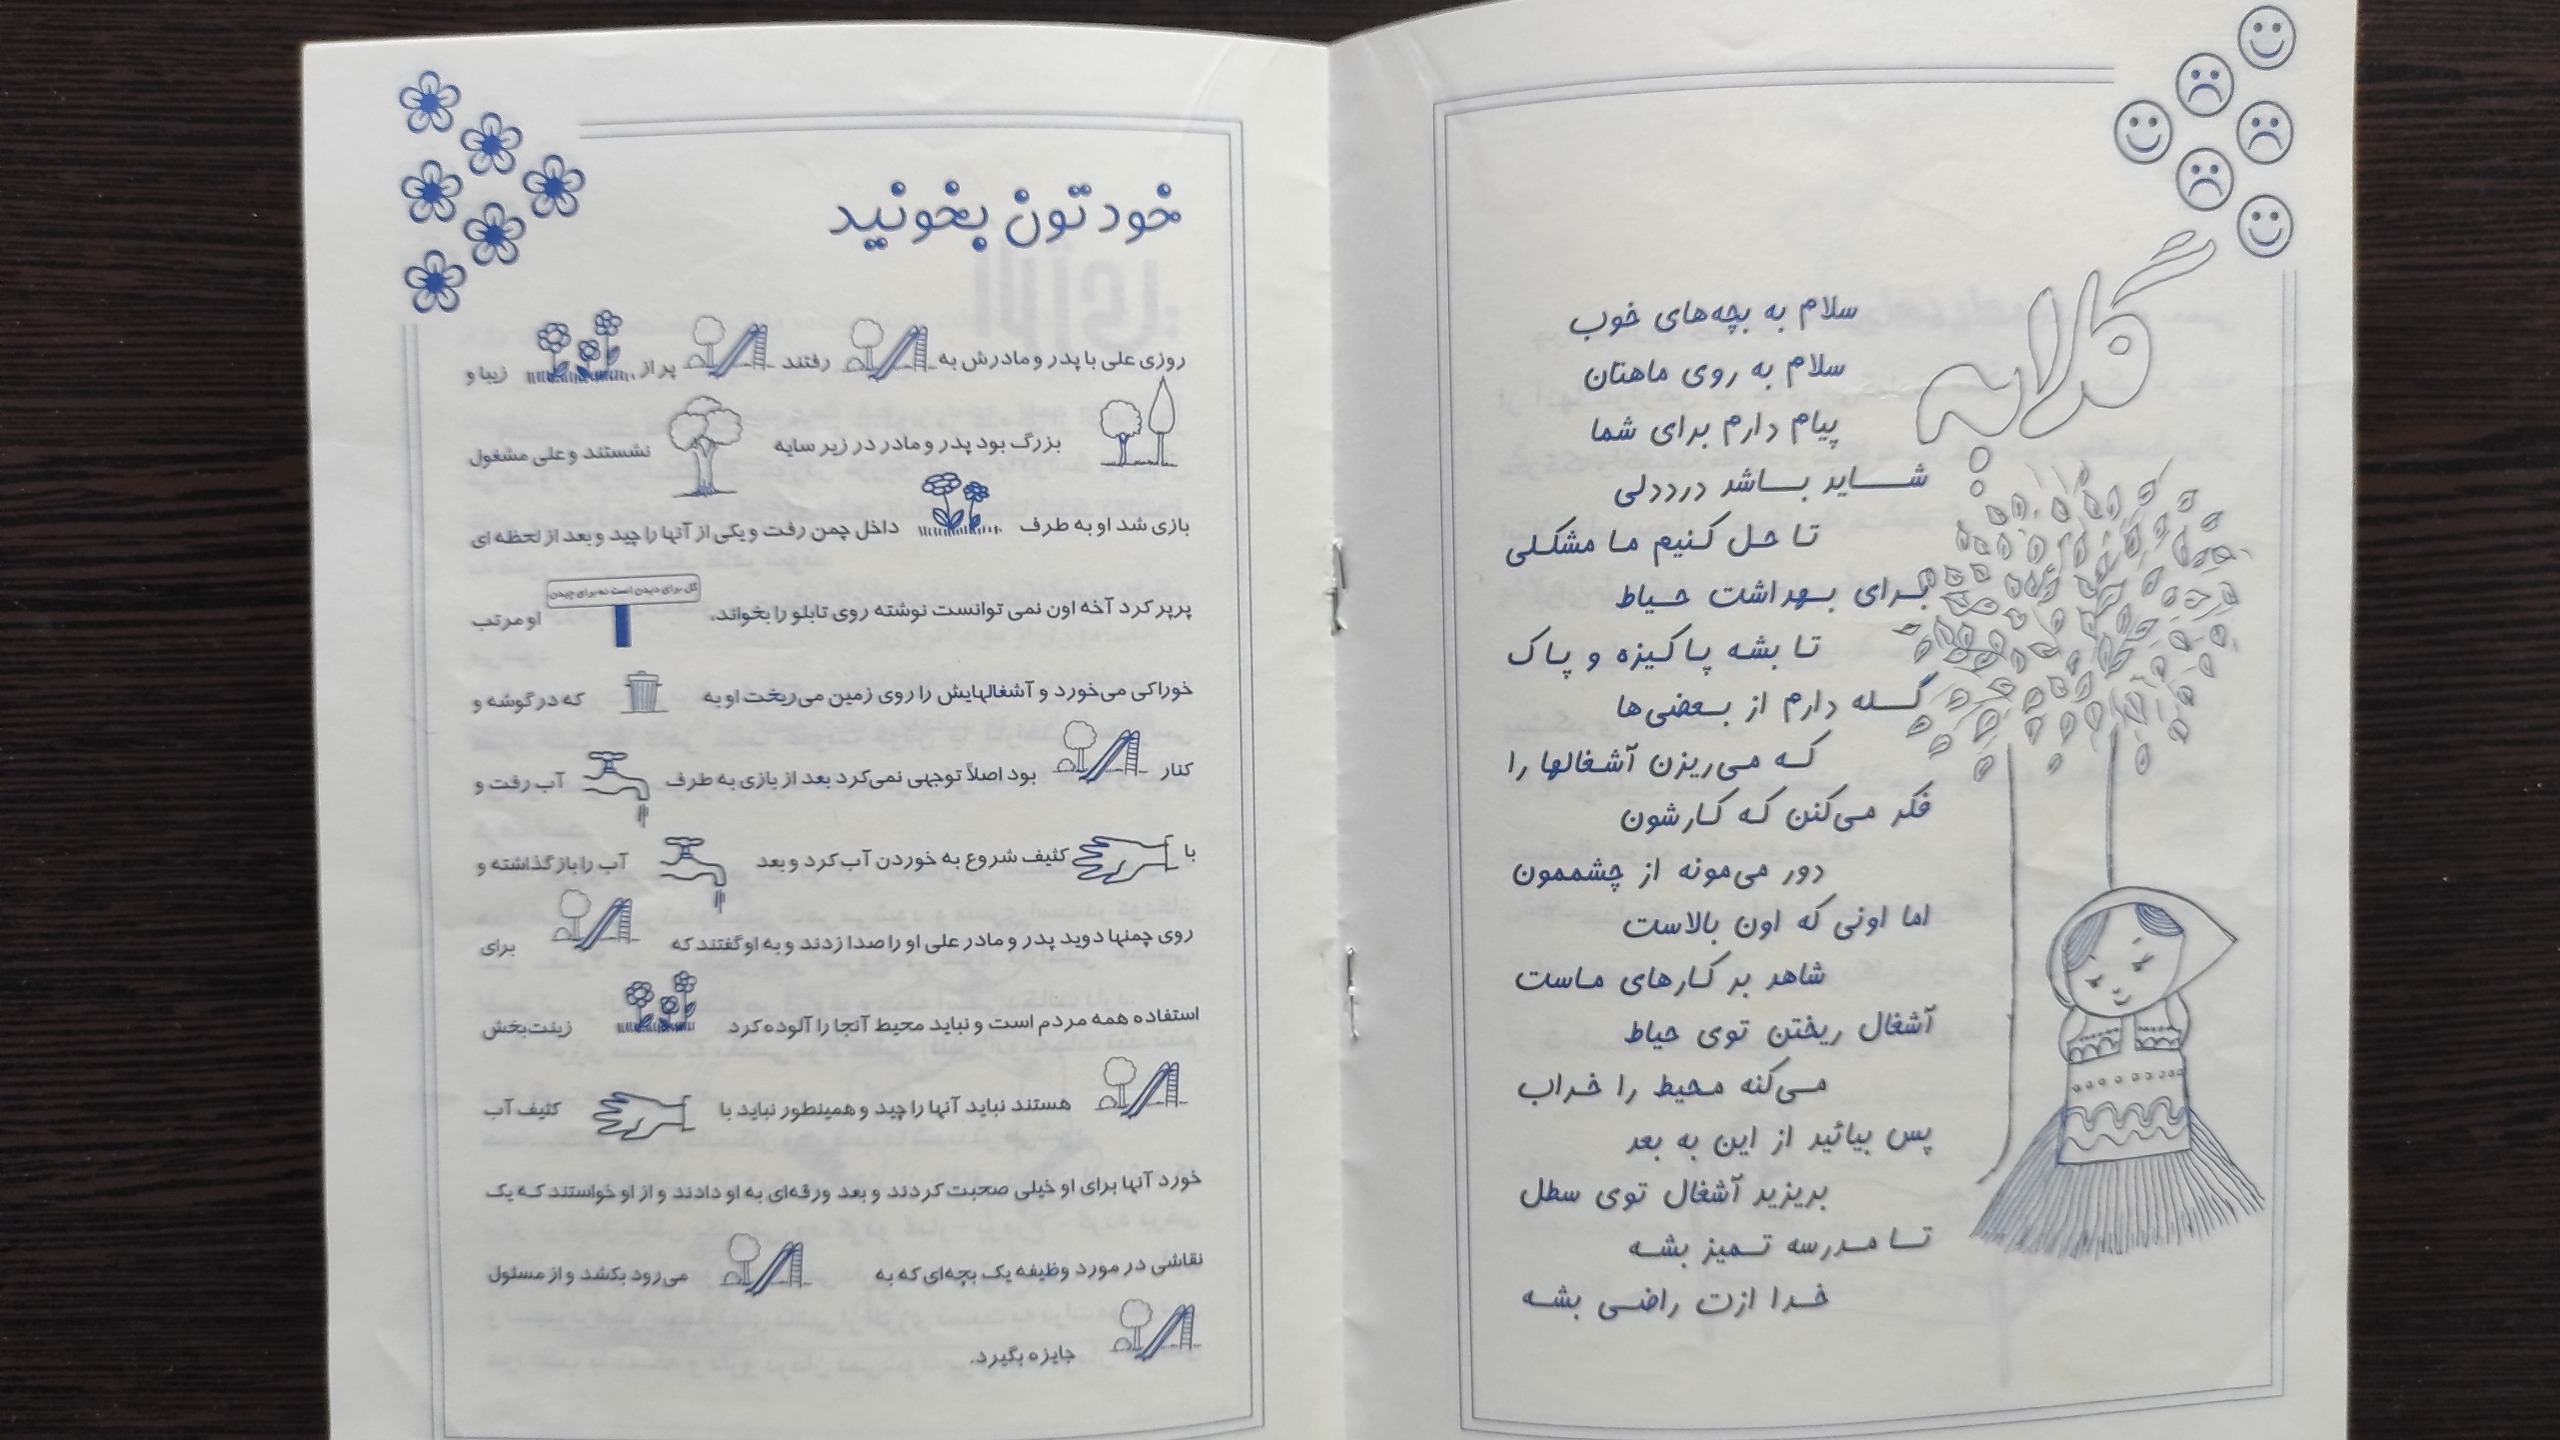 گلایه
سلام به بچه‌های خوب
سلام به روی ماهتان
پیام دارم برای شما
شاید باشد درددلی
تا حل کنیم ما مشکلی
برای بهداشت حیاط
تا بشه پاکیزه و پاک
گله دارم از بعضی‌ها
که می‌ریزن آشغالها را
فکر می‌کنن که کارشون
دور می‌مونه از چشممون
اما اونی که اون بالاست
شاهد بر کارهای ماست
آشغال ریختن توی حیاط
می‌کنه محیط را خراب
پس بیائید از این به بعد
بریزید آشغال توی سطل
تا مدرسه تمیز بشه
خدا ازت راضی بشه
خودتون بخونید
روزی علی با پدر و مادرش به رفتند پر از زیبا و
بزرگ بود پدر و مادر در زیر سایه نشستند و علی مشغول
بازی شد او به طرف داخل چمن رفت و یکی از آنها را چید و بعد از لحظه ای
پرپر کرد آخه اون نمی توانست نوشته روی تابلو را بخواند. گل برای دیدن است نه برای چیدن او مرتب
خوراکی می‌خورد و آشغالهایش را روی زمین می‌ریخت او به که در گوشه و
کنار بود اصلاً توجهی نمی‌کرد بعد از بازی به طرف آب رفت و
با کثیف شروع به خوردن آب کرد و بعد آب را باز گذاشته و
روی چمنها دوید پدر و مادر علی او را صدا زدند و به او گفتند که برای
استفاده همه مردم است و نباید محیط آنجا را آلوده کرد زینت‌بخش
هستند نباید آنها را چید و همینطور نباید با کثیف آب
خورد آنها برای او خیلی صحبت کردند و بعد ورقه‌ای به او دادند و از او خواستند که یک
نقاشی در مورد وظیفه یک بچه‌ای که به می‌رود بکشد و از مسئول
جایزه بگیرد.